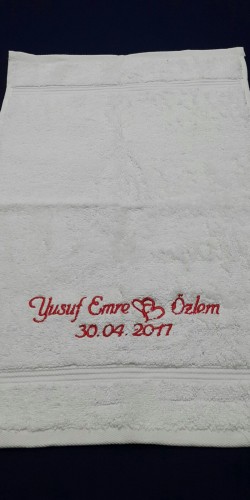 Yusuf Emre Özlem
30.04.2017